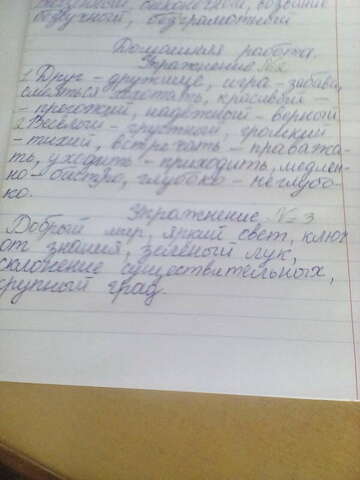 безвкусный, бесконечный,
воздушный, безграмотный
Домашняя работа.
Упражнение №2
1. Друг – дружище, игра – забава,
смеяться – хохотать, красивый –
– пригожий, надёжный – верный
2. Весёлый – грустный, громкий –
– тихий, встречать – проважа-
ть, уходить – приходить, медлен-
но – быстро, глубоко – неглубо-
ко.
Упражнение №3
Добрый мир, яркий свет, ключ
от знания, зелёный лук,
склонение существительных,
крупный град.